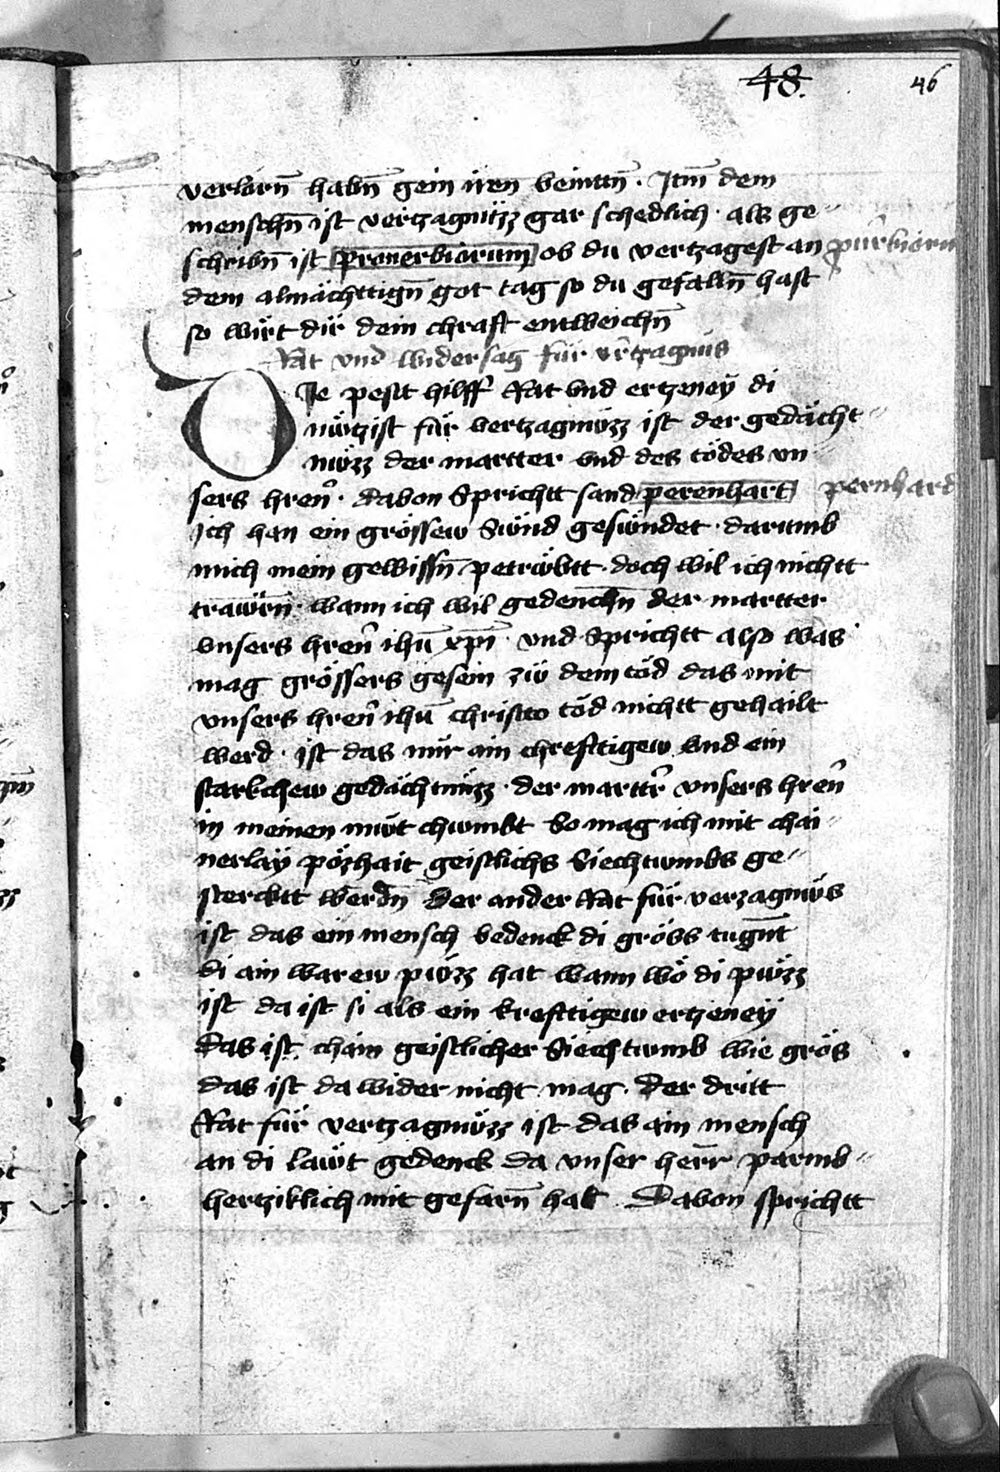 48. 46
verlorn̄ habn̄ gein iren veintn̄ · Itm̄ dem
menschn̄ ist verczagnüzz gar schedlich · als ge-
schribn̄ ist prouerbiorum ob du vertzagest an pūrbiorum
dem almächttign̄ got tag so du gefalln̄ hast
so wirt dir dein chraft entweichn̄
Rat vnd widersag für vr̄tzagnüs
DIe pest hilff Rat vnd ertzeneÿ di
nützist für vertzagnüzz ist der gedächt-
nüzz der martter vnd des tödes vn-
sers hren̄ · dauon sprichtt sand perenhart pernhard
Ich han ein grössew Sünd gesündet · darumb
mich mein gewissn̄ petrübtt · doch wil ich nichtt
trawrn̄ · wann ich wil gedenchn̄ der martter
vnsers hren̄ ihū xp̄i · vnd Sprichtt also was
mag grössers gesein zü dem töd das mit
vnsers hren̄ ihū christo töd nichtt gehailt
werd · ist das mir ain chrefttigew vnd ein
starkchew gedächtnüzz · der marttr̄ vnsers hren̄
in meinen müt chumbt So mag ich mit chai-
nerlaÿ pözhait geistlichs Siechtumbs ge-
stercktt werdn̄ Der ander Rat für verzagnüs
ist das ein mensch bedenck di gröss tugn̄t
di ain warew püzz hat wann wö di püzz
ist da ist si als ein krefttigew ertzeneÿ
Das ist chain geistlicher Siechtumb wie grös
das ist da wider nicht mag · Der dritt
Rat für vertzagnüzz ist das ain mensch
an di läwt gedenck da vnser herr parmb-
hertziklich mit gefarn̄ hat · Dauon sprichtt